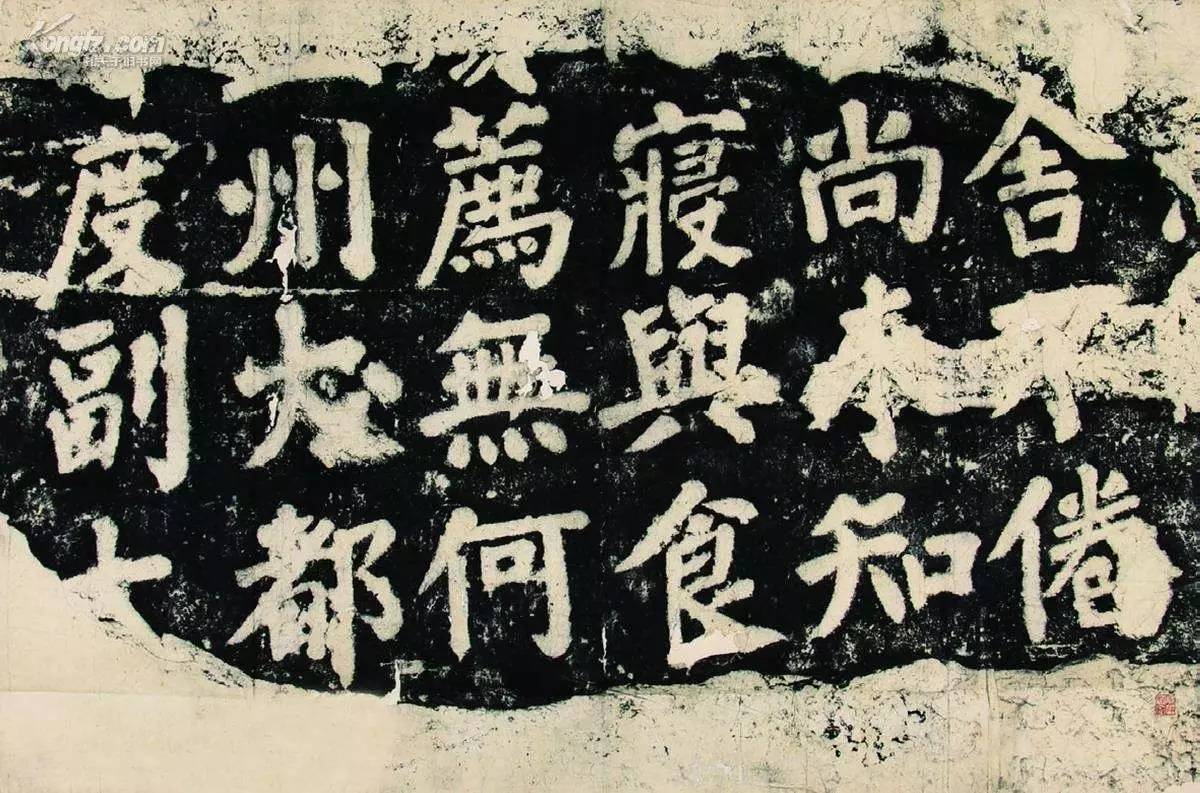 舍不倦
尚夲知
寢與食
薦無何
州大都
度副大
Kongfz.com
孔夫子旧书网